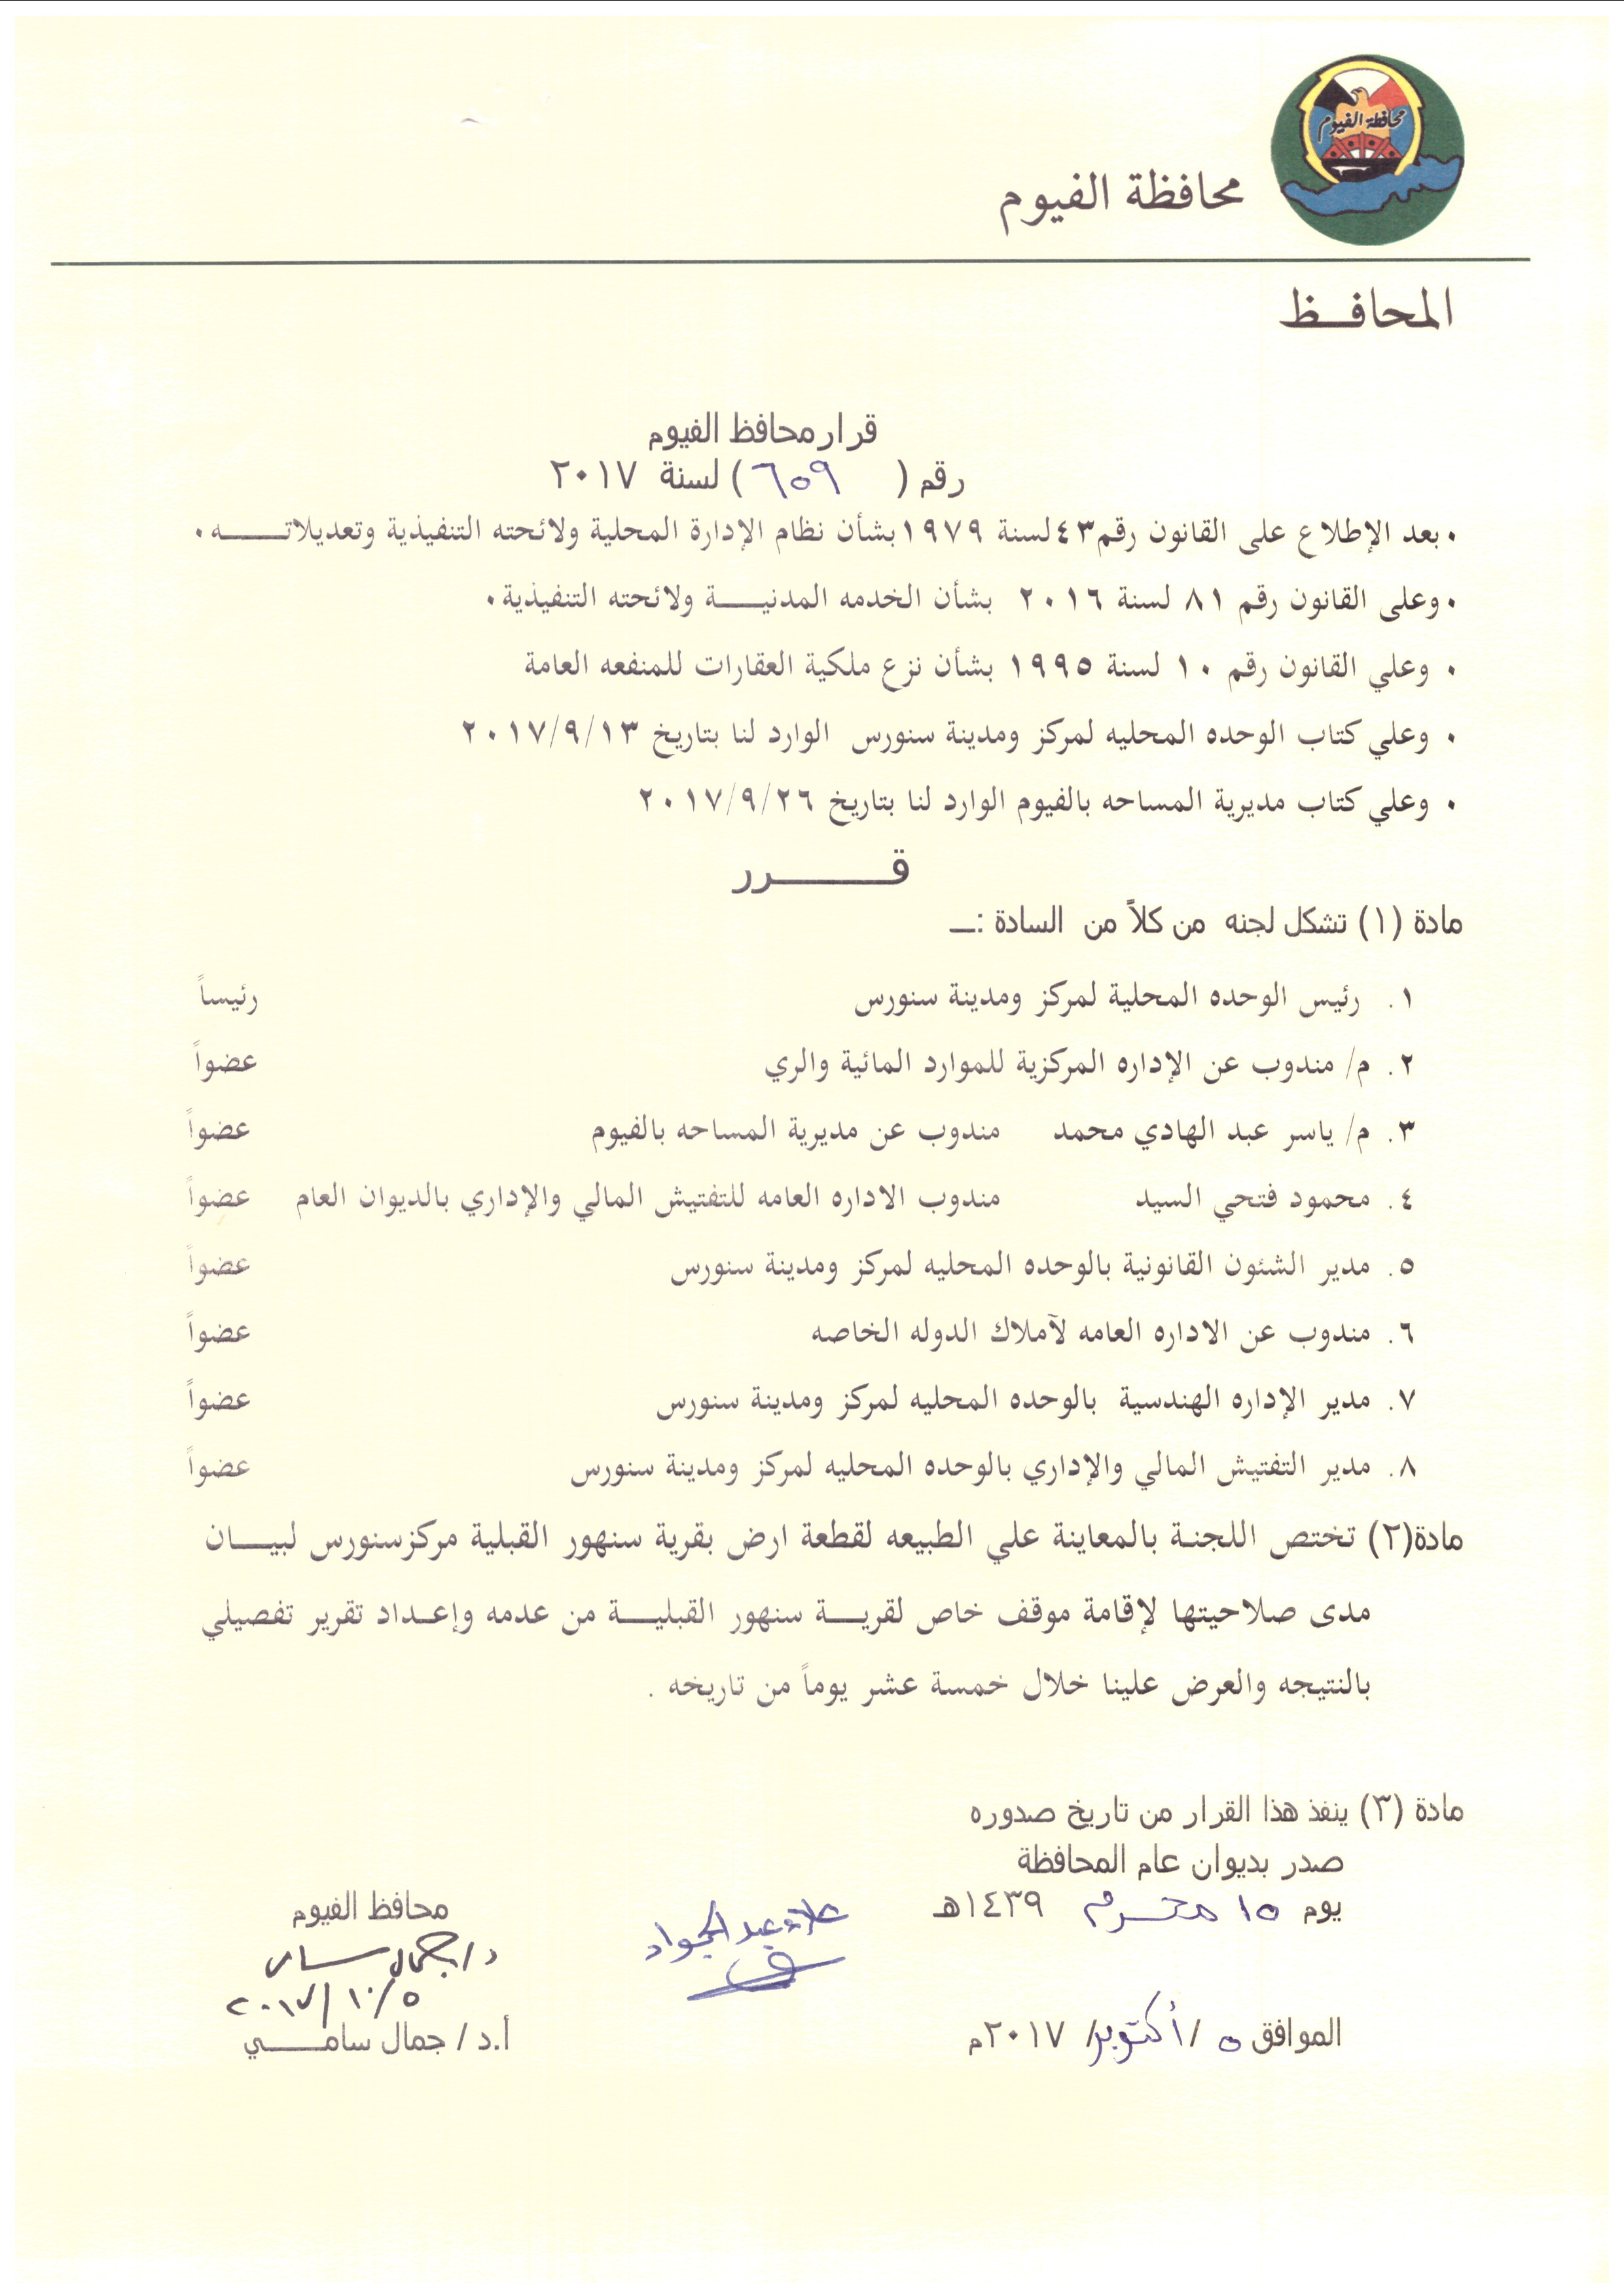 محافظة الفيوم
محافظة الفيوم
المحافـظ
قرار محافظ الفيوم
رقم ( ٦٥٩ ) لسنة ٢٠١٧
• بعد الإطلاع على القانون رقم ٤٣ لسنة ١٩٧٩ بشأن نظام الإدارة المحلية ولائحته التنفيذية وتعديلاتـــه .
• وعلى القانون رقم ٨١ لسنة ٢٠١٦ بشأن الخدمه المدنيـــة ولائحته التنفيذية .
• وعلي القانون رقم ١٠ لسنة ١٩٩٥ بشأن نزع ملكية العقارات للمنفعه العامة
• وعلي كتاب الوحده المحليه لمركز ومدينة سنورس الوارد لنا بتاريخ ٢٠١٧/٩/١٣
• وعلي كتاب مديرية المساحه بالفيوم الوارد لنا بتاريخ ٢٠١٧/٩/٢٦
قـــــرر
مادة (١) تشكل لجنه من كلاً من السادة :ــ
١. رئيس الوحده المحلية لمركز ومدينة سنورس رئيساً
٢. م/ مندوب عن الإداره المركزية للموارد المائية والري عضواً
٣. م/ ياسر عبد الهادي محمد مندوب عن مديرية المساحه بالفيوم عضواً
٤. محمود فتحي السيد مندوب الاداره العامه للتفتيش المالي والإداري بالديوان العام عضواً
٥. مدير الشئون القانونية بالوحده المحليه لمركز ومدينة سنورس عضواً
٦. مندوب عن الاداره العامه لآملاك الدوله الخاصه عضواً
٧. مدير الإداره الهندسية بالوحده المحليه لمركز ومدينة سنورس عضواً
٨. مدير التفتيش المالي والإداري بالوحده المحليه لمركز ومدينة سنورس عضواً
مادة(٢) تختص اللجنة بالمعاينة علي الطبيعه لقطعة ارض بقرية سنهور القبلية مركزسنورس لبيـــان
مدى صلاحيتها لإقامة موقف خاص لقريـــة سنهور القبليـــة من عدمه وإعـداد تقرير تفصيلي
بالنتيجه والعرض علينا خلال خمسة عشر يوماً من تاريخه .
مادة (٣) ينفذ هذا القرار من تاريخ صدوره
صدر بديوان عام المحافظة
يوم ١٥ محرم ١٤٣٩هـ
محافظ الفيوم
علاء عبد الجواد
د/ جمال سامى
٢٠١٧/١٠/٥
الموافق ٥ /أكتوبر/ ٢٠١٧م
أ.د / جمال سامـــي